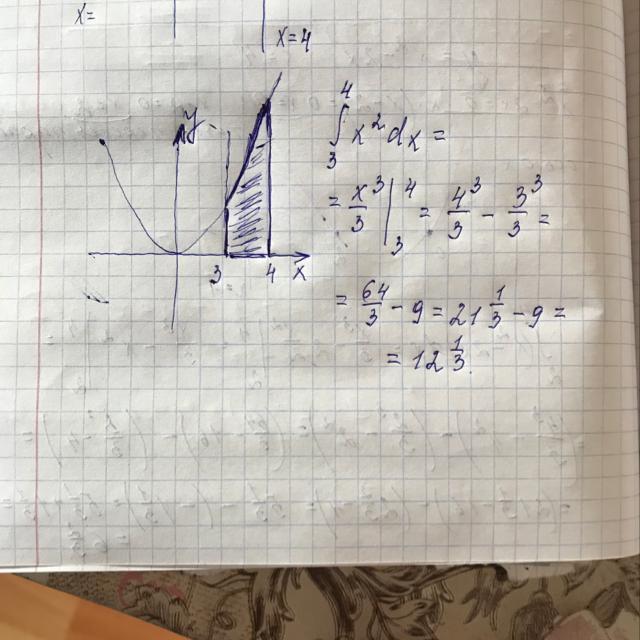 x=
x=4
y
3 4 x
∫₃⁴ x² dx =
= x³/3 |₃⁴ = 4³/3 - 3³/3 =
= 64/3 - 9 = 21 1/3 - 9 =
= 12 1/3.